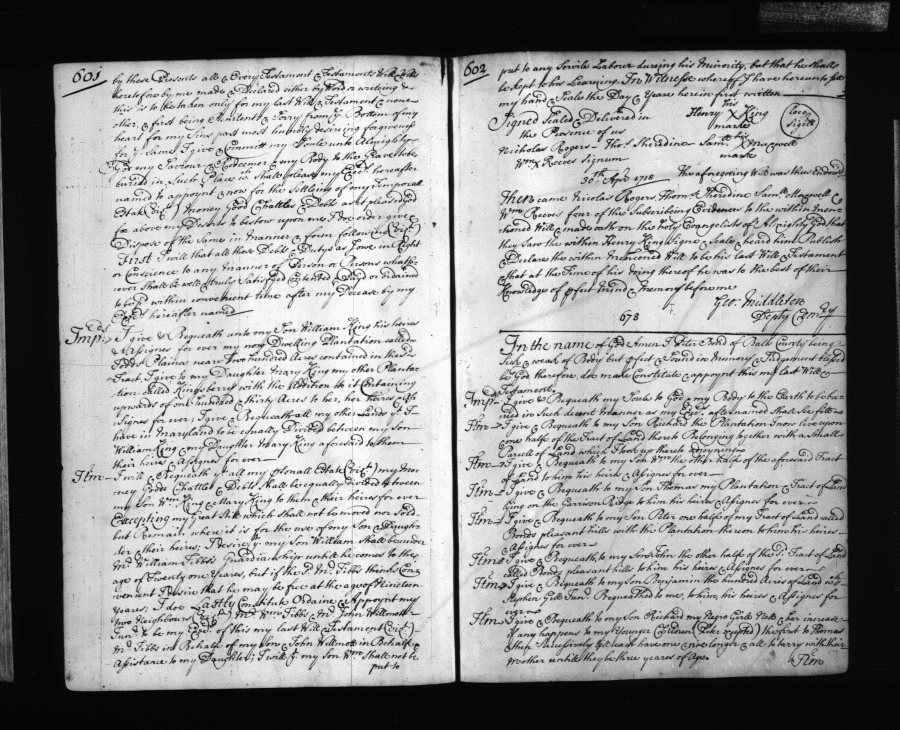 601
by these Presents all & Every Testament & Testaments Will & Wills
heretofore by me made & Declared either by Word or writing &
this is to be taken only for my last Will & Testament & none
other, & first being Penitent & Sorry from ye Bottom of my
heart for my Sins past most humbly desireing forgiveness
for ye Same I give & Committ my Soule unto Almighty
God my Saviour & Redeemer & my Body to the Grave to be
buried in Such Place as Shall please my Exrs hereafter
named to appoynt & now for the Settling of my Temporall
Estate (vizt) money Goods Chattles & Debts as it pleased god
far above my Deserts to bestow upon me I do order give &
Dispose of the Same in manner & form following (vizt)
First I will that all those Debts & Dutys as I owe in Right
or Conscience to any manner of Person or Persons whatso=
ever Shall be well & truly Satisfyed Contented & Paid or Ordained
to be pd within convenient time after my Decease by my
Exrs hereafter named
Imps I give & Bequeath unto my Son William King his heires
& Assignes for ever my now Dwelling Plantation called
Todds Plaines near Two hundred Acres contained in the sd
Tract, I give to my Daughter Mary King my other Planta=
tion called Kingsberry with the Addition to it Containing
upwards of one hundred & thirty Acres to her, her heires & As=
signes for ever; I give & Bequeath all my other Lands yt I
have in Maryland to be equally Divided between my Son
William King & my Daughter Mary King aforesaid to them
their heires & Assignes for ever
Itm I will & Bequeath yt all my psonall Estate (vizt) my mo=
ney Goods Chattles & Debts Shall be equally divided between
my Son Wm King & Mary King to them their heires for ever
Excepting my Great Still which shall not be moved nor Sold
but Remain where it is for the use of my Son & Daugh=
ter their heires, I Desire yt my Son William Shall be under
Mr William Tibbs Guardianship untill he comes to the
age of Twenty one Yeares, but if the sd Mr Tibbs thinks Con=
venient I desire that he may be free at the age of Nineteen
yeares; I doe Lastly Constitute Ordaine & Appoynt my
two Neighbours (vizt) Mr Wm Tibbs & Mr John Willmott
Senr to be my Exrs of this my last Will & Testament (vizt)
Mr Tibbs in Behalf of my Son & John Willmott in Behalf &
Assistance to my Daughter; I will yt my Son Wm Shall not be
put to
602
put to any Servile Labour dureing his Minority, but that he Shalls
be Kept to his Learning In Witness whereof I have hereunto sett
my hand & Seale the Day & Yeare herein first written
Signed Sealed & Delivered in
the Presence of us
his
Henry X King
mark
Locus
Sigilli
Nicholas Rogers – Thos Sheredine Samll his X Maxwell
mark
Wm X Reeves Signum
30th Apr 1718 The aforegoing Will was thus Endorsed
Then came Nicolas Rogers, Thomas Sheredine Samll Maxwell &
Wm Reeves four of the Subscribeing Evidences to the within men=
coned Will & made oath on the Holy Evangelists of Almighty God that
they Saw the within Henry King Signe & Seale & heard him Publish
& Declare the within mencioned Will to be his last Will & Testament
& that at the Time of his doing thereof he was to the best of their
Knowledge of pfect mind & memory before me
Geo: Middleton
Depty Comry
678
In the name of God Amen I Peter Bond of Balt County being
Sick & weak of Body but pfect & Sound in Memory & Judgement blessed
be God therefore, doe make Constitute & appoynt this my last Will &
Testament
Imps I give & Bequeath my Soule to God & my Body to the Earth to be bu=
ried in Such decent manner as my Exrs after named Shall See fitt
Itm I give & Bequeath to my Son Richard the Plantation I now live upon
& one halfe of the Tract of Land thereto Belonging together with a Small
Parcell of Land which I took up thereto adjoyning
Itm I give & Bequeath to my Son Wm the other half of the aforesaid Tract
of Land to him his heires & Assignes for ever
Itm I give & Bequeath to my Son Thomas my Plantation & Tract of Land
lying on the Garrison Ridge to him his heires & Assignes for ever
Itm I give & Bequeath to my Son Peter one halfe of my Tract of Land called
Bonds pleasant hills with the Plantation thereon to him his heires
& Assignes for ever
Itm I give & Bequeath to my Son John the other half of the sd Tract of Land
called Bonds pleasant hills to him his heires & Assignes for ever
Itm I give & Bequeath to my Son Benjamin the hundred Acres of Land wch
Stephen Gill Senr Bequeathed to me, to him his heires & Assignes for
ever
Itm I give & Bequeath to my Son Richard my Negro Girle Nell & her increase
if any happens to my Younger Children (Peter excepted) the first to Thomas
then Sucessively till each have one & no longer & all to tarry with their
Mother untill they be three yeares of Age
Itm